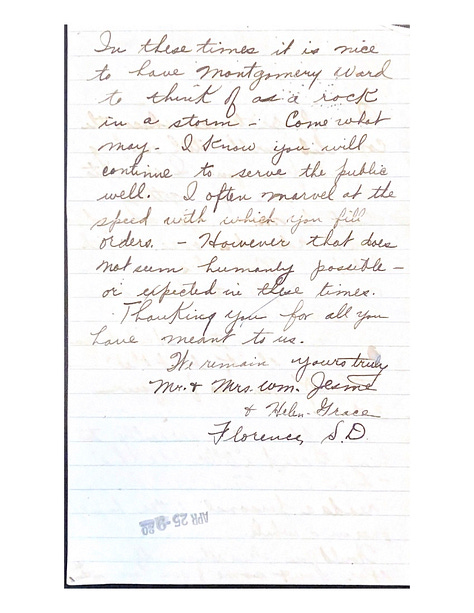 In these times it is nice
to have Montgomery Ward
to think of as a rock
in a storm - Come what
may - I know you will
continue to serve the public
well. I often marvel at the
speed with which you fill
orders. - However that does
not seem humanly possible -
or expected in these times.
Thanking you for all you
have meant to us.
We remain yours truly
Mr. & Mrs. Wm.
& Helen-Grace
Florence, S.D.
APR 25